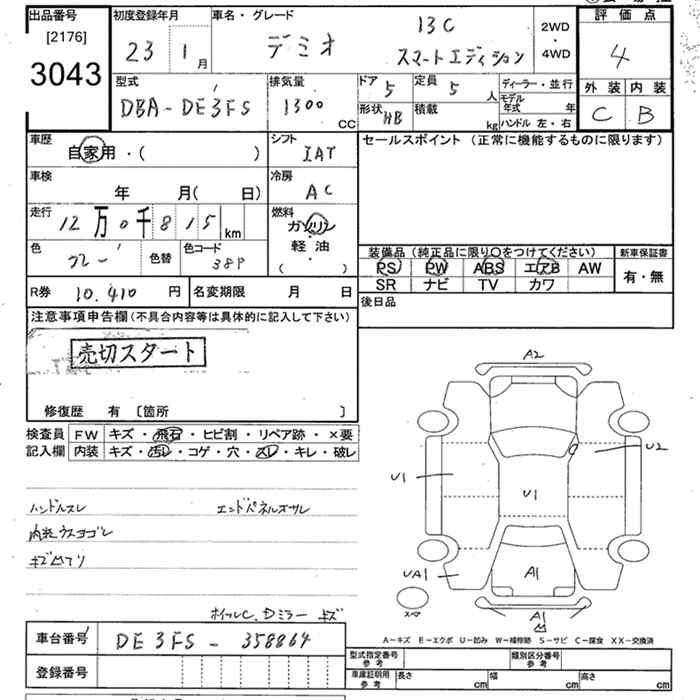 出品番号
[2176]
3043
初度登録年月
23 1月
車名・グレード
デミオ
13C
スマートエディション
2WD
・
4WD
評価点
4
外装 内装
C B
型式
DBA-DE3FS
排気量
1300
CC
ドア 5
形状 HB
定員 5人
積載 kg
ディーラー・並行
モデル年式 年
ハンドル 左・右
車歴
自家用・( )
シフト
IAT
セールスポイント (正常に機能するものに限ります)
車検
年 月( 日)
冷房
AC
走行
12万0千815km
燃料
ガソリン
軽油
( )
色
グレー
色替
色コード
38P
装備品(純正品に限り〇をつけてください)
PS PW ABS エアB AW
SR ナビ TV カワ
新車保証書
有・無
R券 10.410円
名変期限 月 日
後日品
注意事項申告欄(不具合内容等は具体的に記入して下さい)
売切スタート
修復歴 有 〔箇所 〕
検査員
記入欄
FW キズ・飛石・ヒビ割・リペア跡・×要
内装 キズ・汚レ・コゲ・穴・スレ・キレ・破レ
ハンドルスレ
エンドパネルズサレ
内装ウスヨゴレ
キズ凹アリ
ホイルC、Dミラーキズ
A2
U2
U1
U1
UA1
A1
A1
スペア
A-キズ E-エクボ U-凹み W-補修跡 S-サビ C-腐食 XX-交換済
車台番号 DE3FS-358864
登録番号
型式指定番号
参考
類別区分番号
参考
車庫証明用
参考
長さ cm
幅 cm
高さ cm